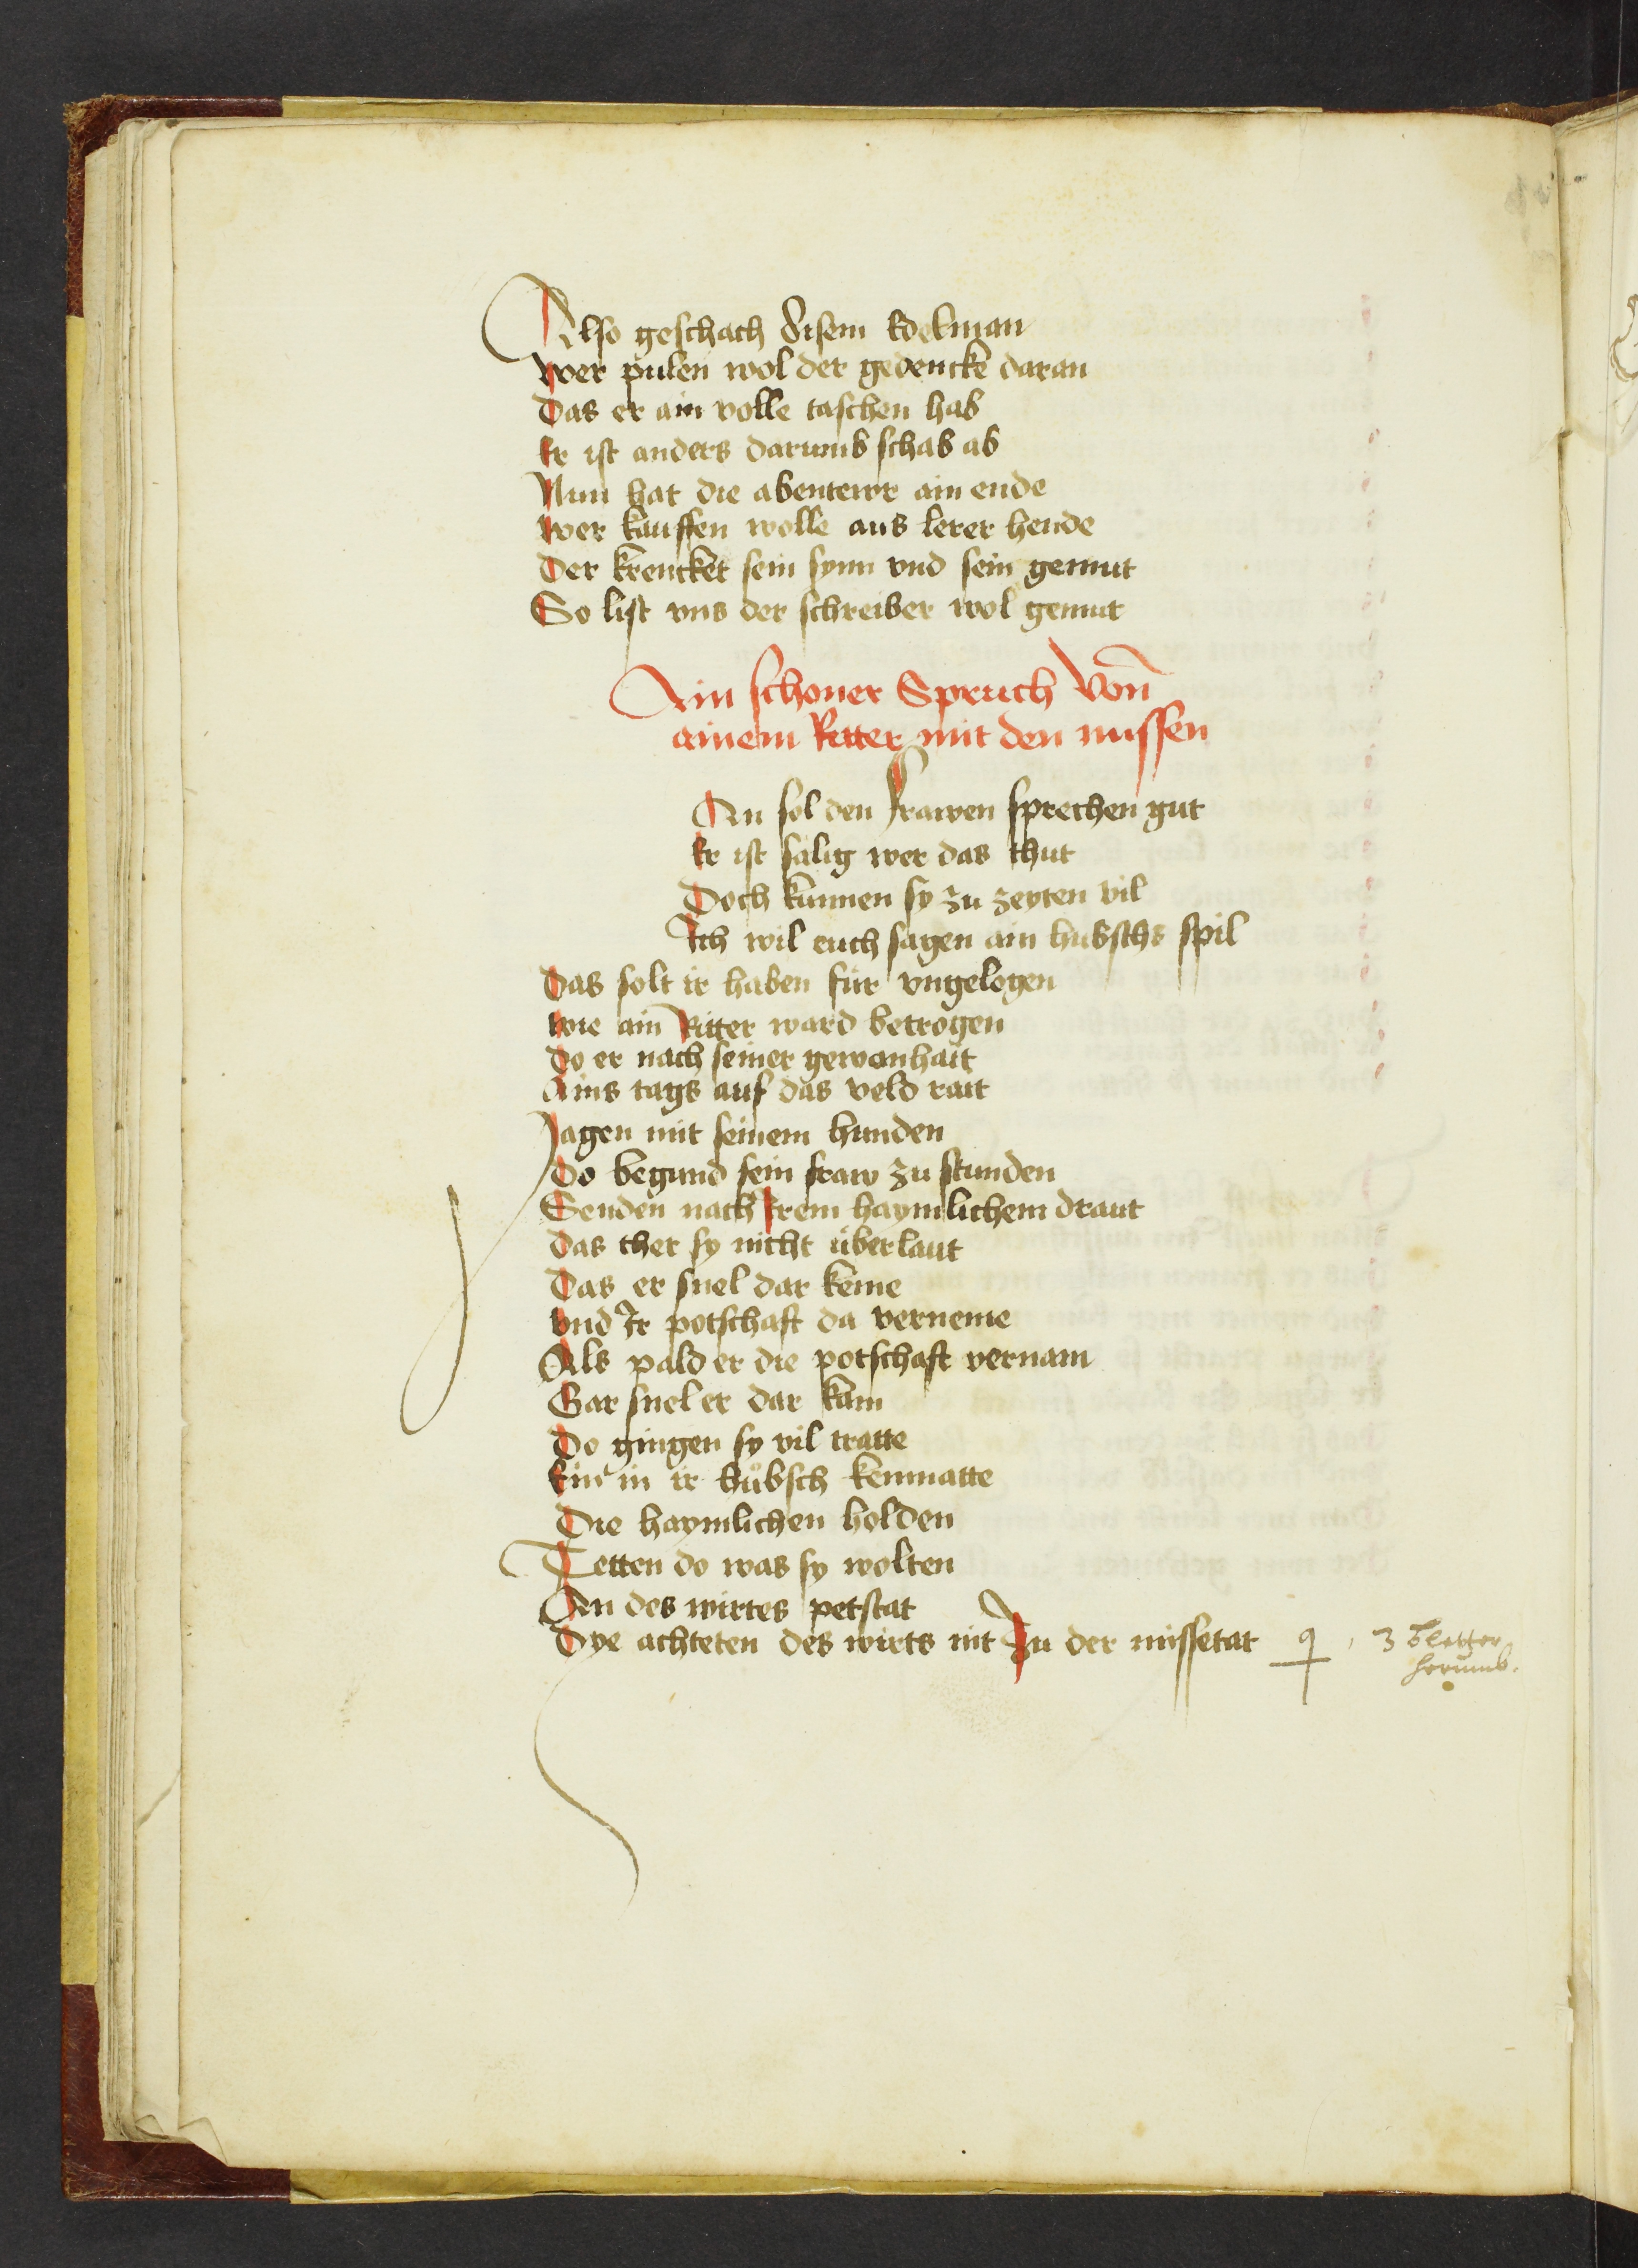 Also geschach disem Edelman
Wer pulen wol der gedencke daran
Das er ain volle taschen hab
Er ist anders darumb schab ab
Nun hat die abentewr ain ende
Wer kauffen wolle aus lerer hende
Der krencket sein synn vnd sein gemut
So list vns der schreiber wol gemut
Ain schoner Spruch Von
ainem Ritter mit den nussen
An sol den frawen sprechen gut
Er ist sälig wer das thut
Doch kunnen sy zu zeyten vil
Ich wil euch sagen ain hubschs spil
Das solt ir haben für vngelogen
Wie ain Ritter ward betrogen
Do er nach seiner gewonhait
Ains tags auf das veld rait
Jagen mit seinem hunden
Do begund sein fraw zu stunden
Senden nach Irem haymlichem draut
Das thet sy nicht überlaut
Das er snel dar keme
Vnd Ir potschaft da verneme
Als pald er die potschaft vernam
Gar snel er dar kam
Do gingen sy vil tratte
Ein in ir hübsch kemnatte
Die haymlichen holden
Tetten do was sy wolten
An des wirtes petstat
Dye achteten des wirts nit Zu der missetat
3 bletter
herumb.